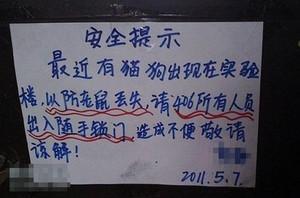 安全提示
最近有猫狗出现在实验
楼,以防老鼠丢失,请406所有人员
出入随手锁门,造成不便敬请
谅解!
2011.5.7.